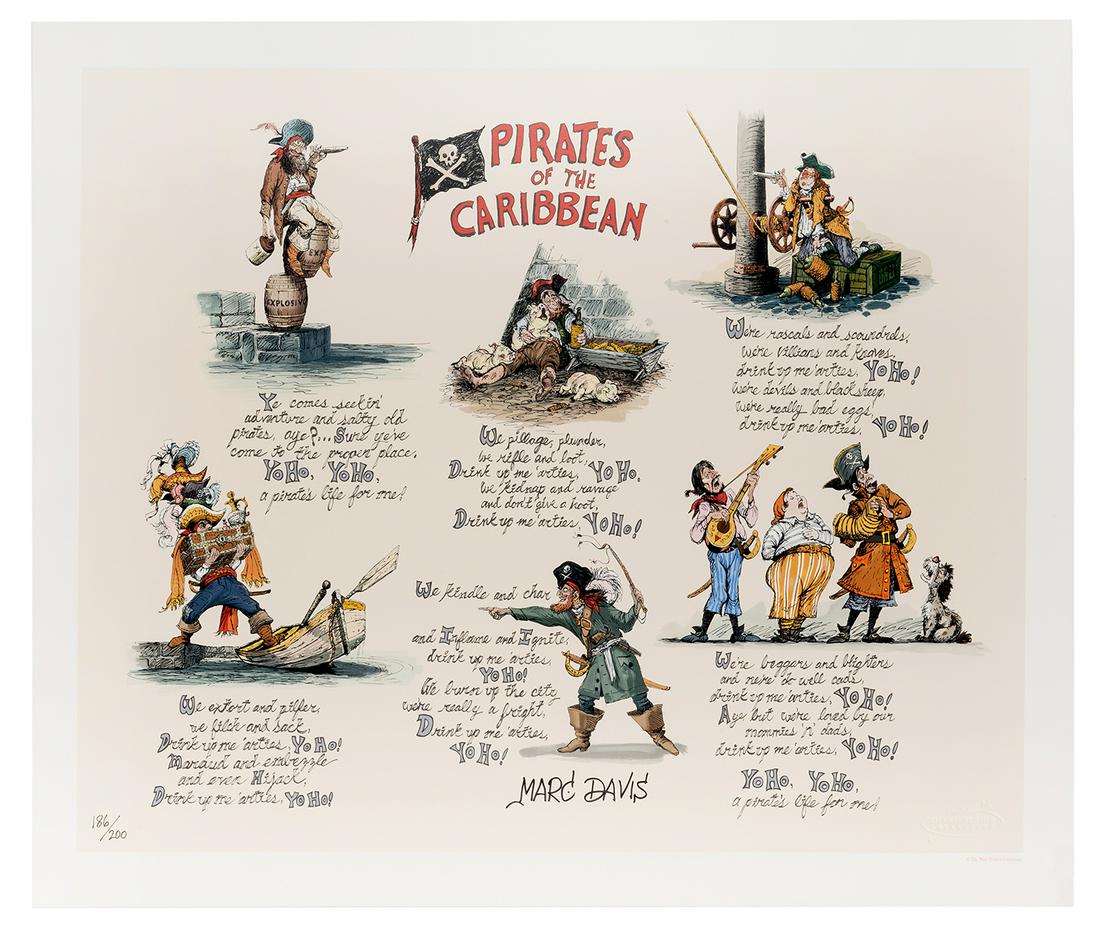 PIRATES
OF THE
CARIBBEAN
EXP
EXPLOSIV
Ye comes seekin'
adventure and salty old
pirates, aye?... Sure ye've
come to the proper place.
YO HO, YO HO,
a pirate's life for me!
We pillage, plunder,
we rifle and loot,
Drink up me 'arties, YO HO.
We kidnap and ravage
and don't give a hoot,
Drink up me 'arties, YO HO!
We're rascals and scoundrels,
we're villians and knaves,
drink up me 'arties, YO HO!
we're devils and black sheep,
we're really bad eggs,
drink up me 'arties, YO HO!
We extort and pilfer,
we filch and sack,
Drink up me 'arties, YO HO!
Maraud and embezzle
and even Hijack,
Drink up me 'arties, YO HO!
We kindle and char
and Inflame and Ignite,
drink up me 'arties,
YO HO!
We burn up the city
we're really a fright,
Drink up me 'arties,
YO HO!
We're beggars and blighters
and ne're do well cads,
drink up me 'arties, YO HO!
Aye but we're loved by our
mommies 'n' dads,
drink up me 'arties, YO HO!
YO HO, YO HO,
a pirate's life for me!
MARC DAVIS
186/200
© The Walt Disney Company